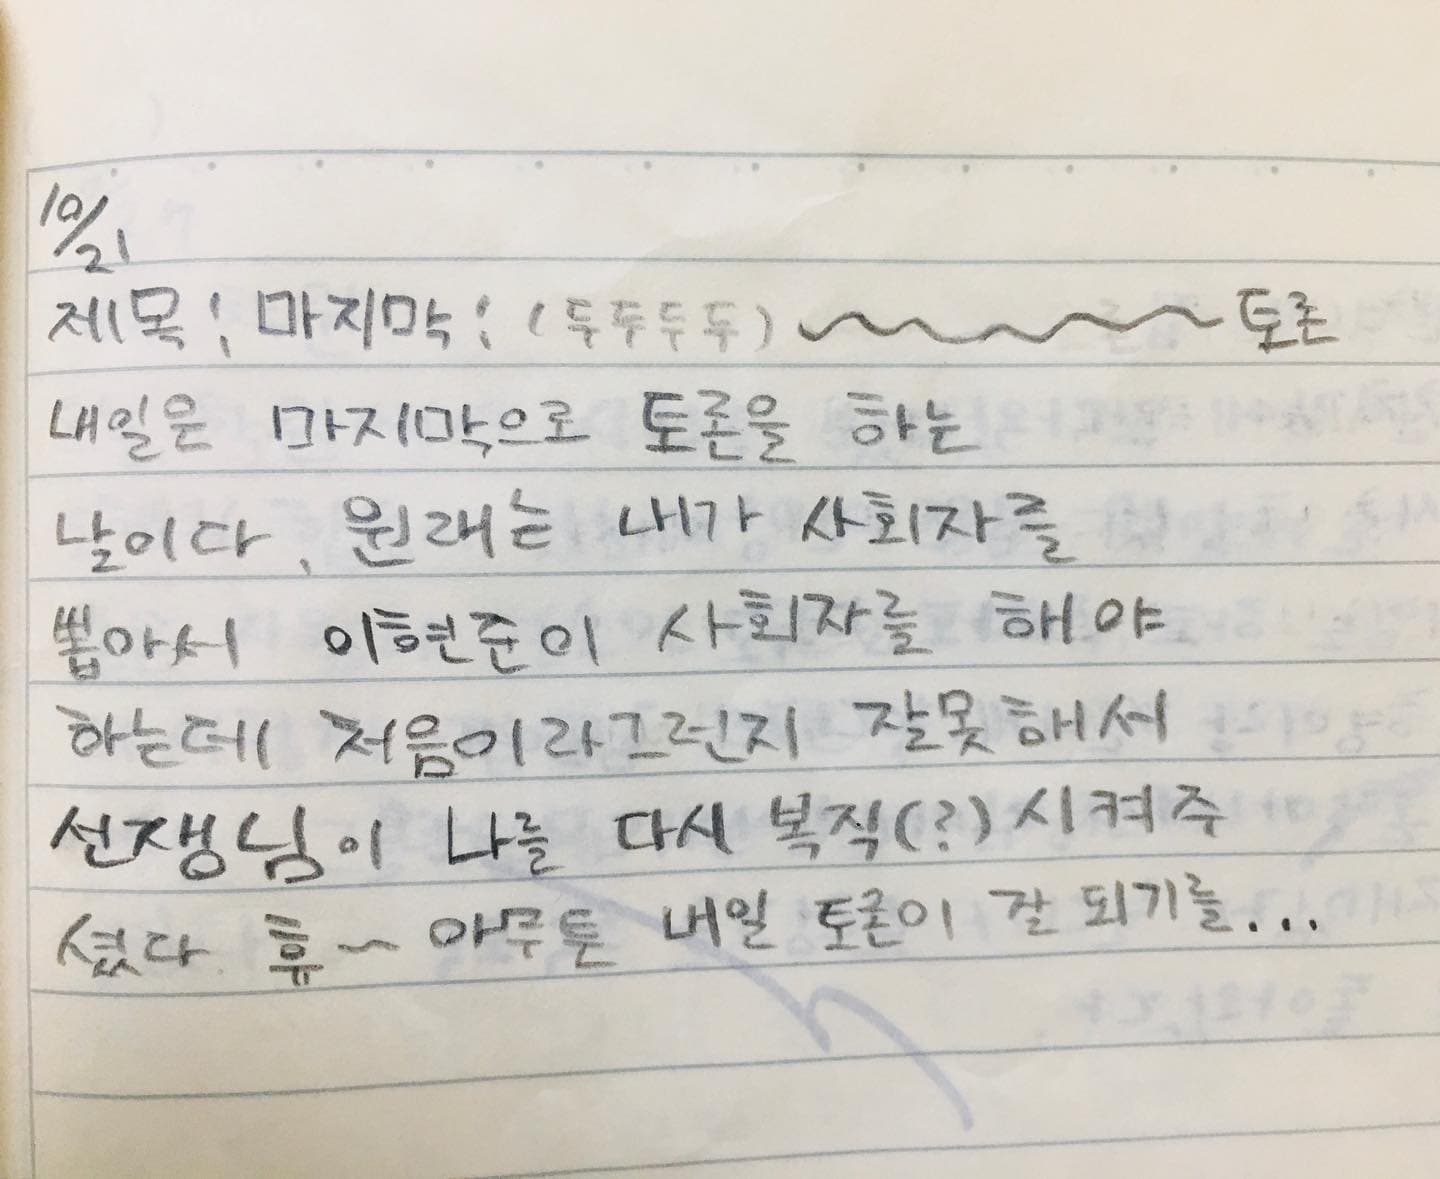 10/21
제목: 마지막: (두두두두)~~~~토론
내일은 마지막으로 토론을 하는
날이다. 원래는 내가 사회자를
뽑아서 이현준이 사회자를 해야
하는데 처음이라그런지 잘못해서
선쟁님이 나를 다시 복직(?)시켜주
셨다 휴~ 아무튼 내일 토론이 잘 되기를...